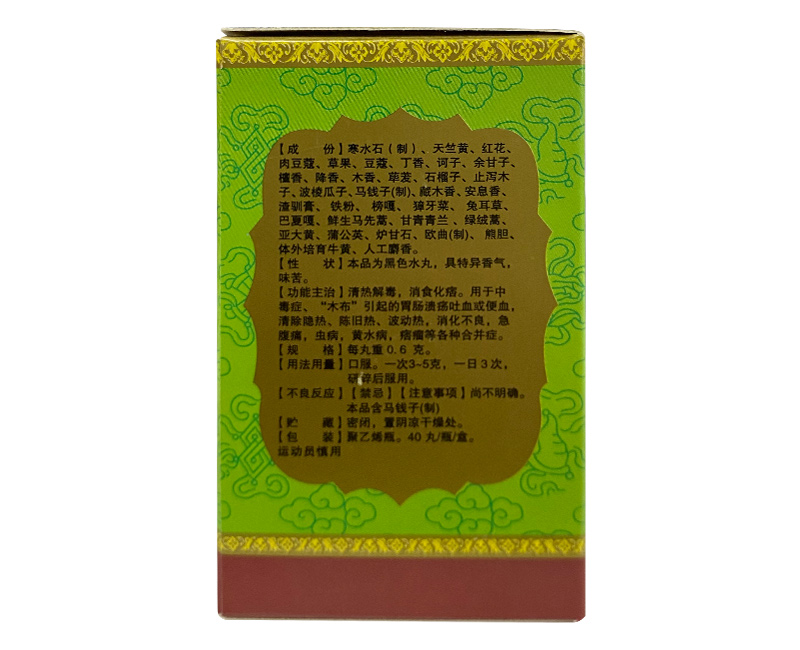 【成　份】寒水石（制）、天竺黄、红花、
肉豆蔻、草果、豆蔻、丁香、诃子、余甘子、
檀香、降香、木香、荜茇、石榴子、止泻木
子、波棱瓜子、马钱子(制)、藏木香、安息香、
渣驯膏、铁粉、榜嘎、獐牙菜、兔耳草、
巴夏嘎、鲜生马先蒿、甘青青兰、绿绒蒿、
亚大黄、蒲公英、炉甘石、欧曲(制)、熊胆、
体外培育牛黄、人工麝香。
【性　状】本品为黑色水丸，具特异香气，
味苦。
【功能主治】清热解毒，消食化痞。用于中
毒症、“木布”引起的胃肠溃疡吐血或便血，
清除隐热、陈旧热、波动热，消化不良，急
腹痛，虫病，黄水病，痞瘤等各种合并症。
【规　格】每丸重0.6 克。
【用法用量】口服。一次3~5克，一日3次，
研碎后服用。
【不良反应】【禁忌】【注意事项】尚不明确。
本品含马钱子(制)
【贮　藏】密闭，置阴凉干燥处。
【包　装】聚乙烯瓶。40 丸/瓶/盒。
运动员慎用